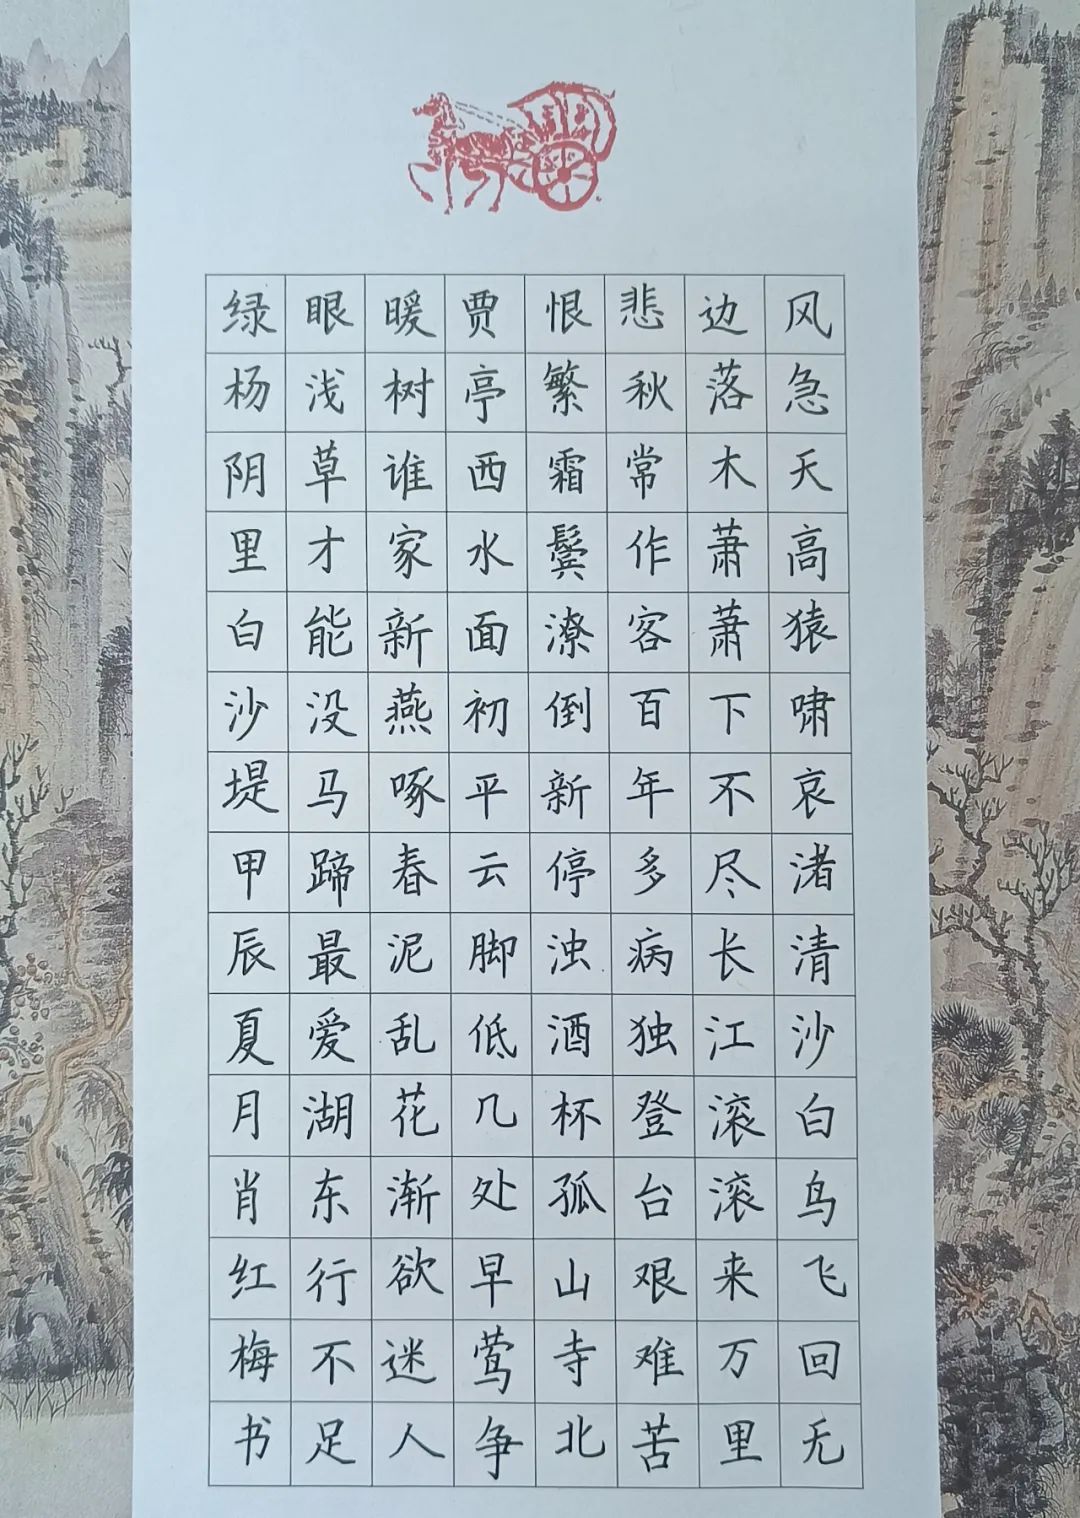 风急天高猿啸哀渚清沙白鸟飞回无
边落木萧萧下不尽长江滚滚来万里
悲秋常作客百年多病独登台艰难苦
恨繁霜鬓潦倒新停浊酒杯孤山寺北
贾亭西水面初平云脚低几处早莺争
暖树谁家新燕啄春泥乱花渐欲迷人
眼浅草才能没马蹄最爱湖东行不足
绿杨阴里白沙堤甲辰夏月肖红梅书